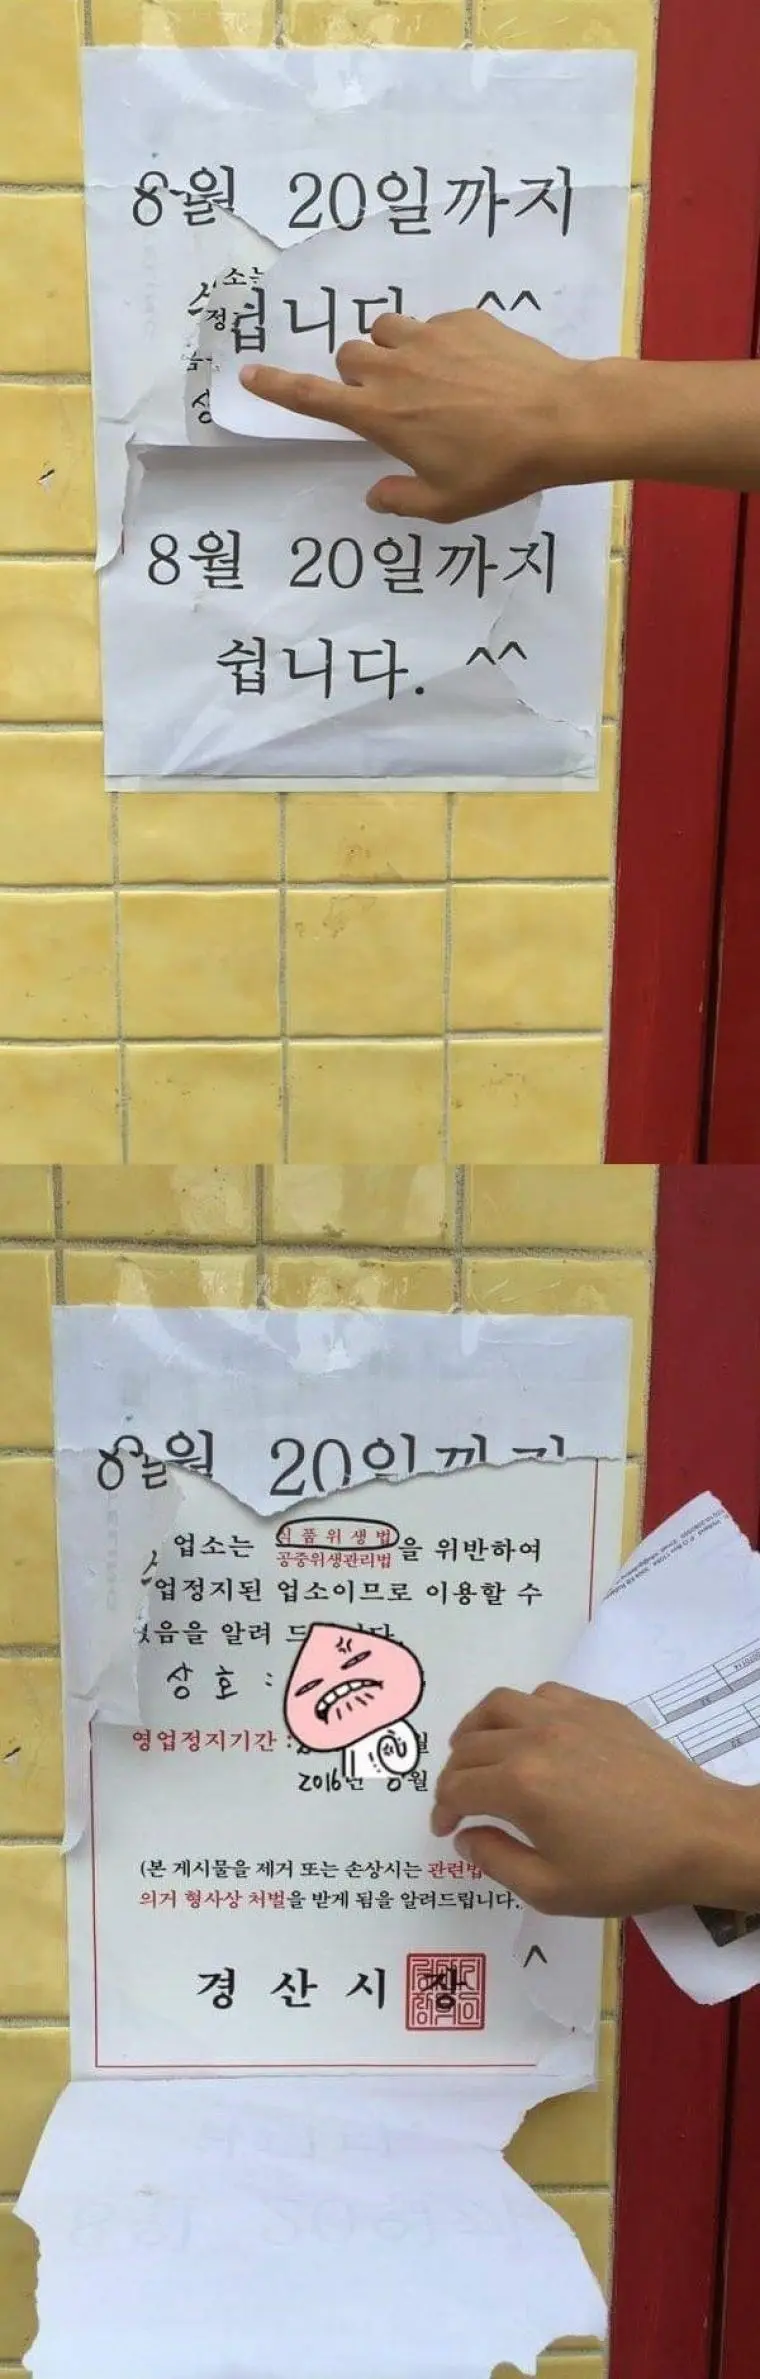 8월 20일까지
쉽니다. ^^
8월 20일까지
쉽니다. ^^
8월 20일까지
업소는 식품위생법 공중위생관리법 을 위반하여
업정지된 업소이므로 이용할 수
음을 알려 드
상호 :
영업정지기간 :
2016년 8월
(본 게시물을 제거 또는 손상시는 관련법
의거 형사상 처벌을 받게 됨을 알려드립니다.
^
경산시장